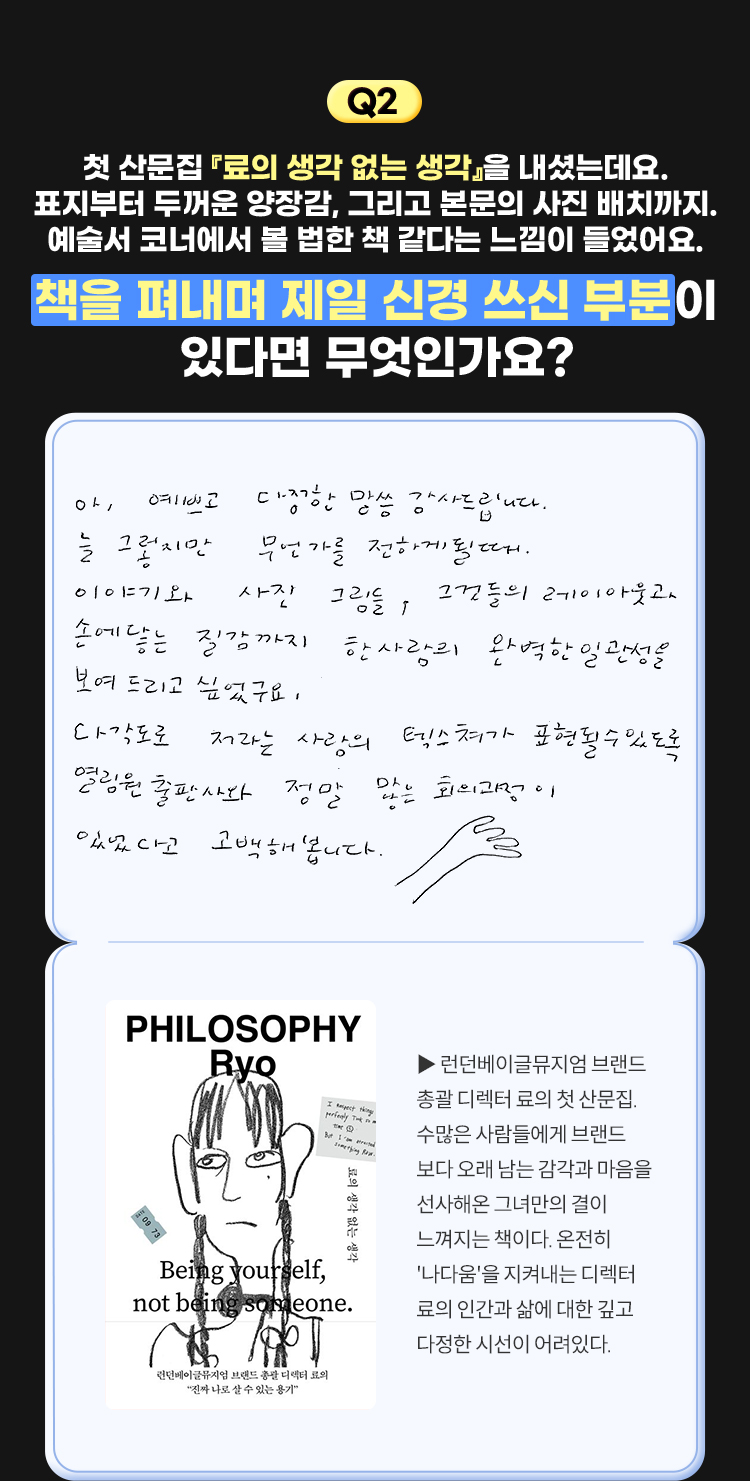 Q2
첫 산문집 『료의 생각 없는 생각』을 내셨는데요.
표지부터 두꺼운 양장감, 그리고 본문의 사진 배치까지.
예술서 코너에서 볼 법한 책 같다는 느낌이 들었어요.
책을 펴내며 제일 신경 쓰신 부분이
있다면 무엇인가요?
아, 예쁘고 다정한 말씀 감사드립니다.
늘 그렇지만 무언가를 전하게될때.
이야기와 사진 그림들, 그것들의 레이아웃과
손에 닿는 질감까지 한사람의 완벽한 일관성을
보여 드리고 싶었구요,
다각도로 저라는 사람의 텍스쳐가 표현될수있도록
열림원 출판사와 정말 많은 회의과정이
있었다고 고백해봅니다.
PHILOSOPHY
Ryo
I respect things
perfectly
But I am attracted
something
료의 생각 없는 생각
09 73
Being yourself,
not being someone.
런던베이글뮤지엄 브랜드 총괄 디렉터 료의
“진짜 나로 살 수 있는 용기”
▶ 런던베이글뮤지엄 브랜드
총괄 디렉터 료의 첫 산문집.
수많은 사람들에게 브랜드
보다 오래 남는 감각과 마음을
선사해온 그녀만의 결이
느껴지는 책이다. 온전히
'나다움'을 지켜내는 디렉터
료의 인간과 삶에 대한 깊고
다정한 시선이 어려있다.